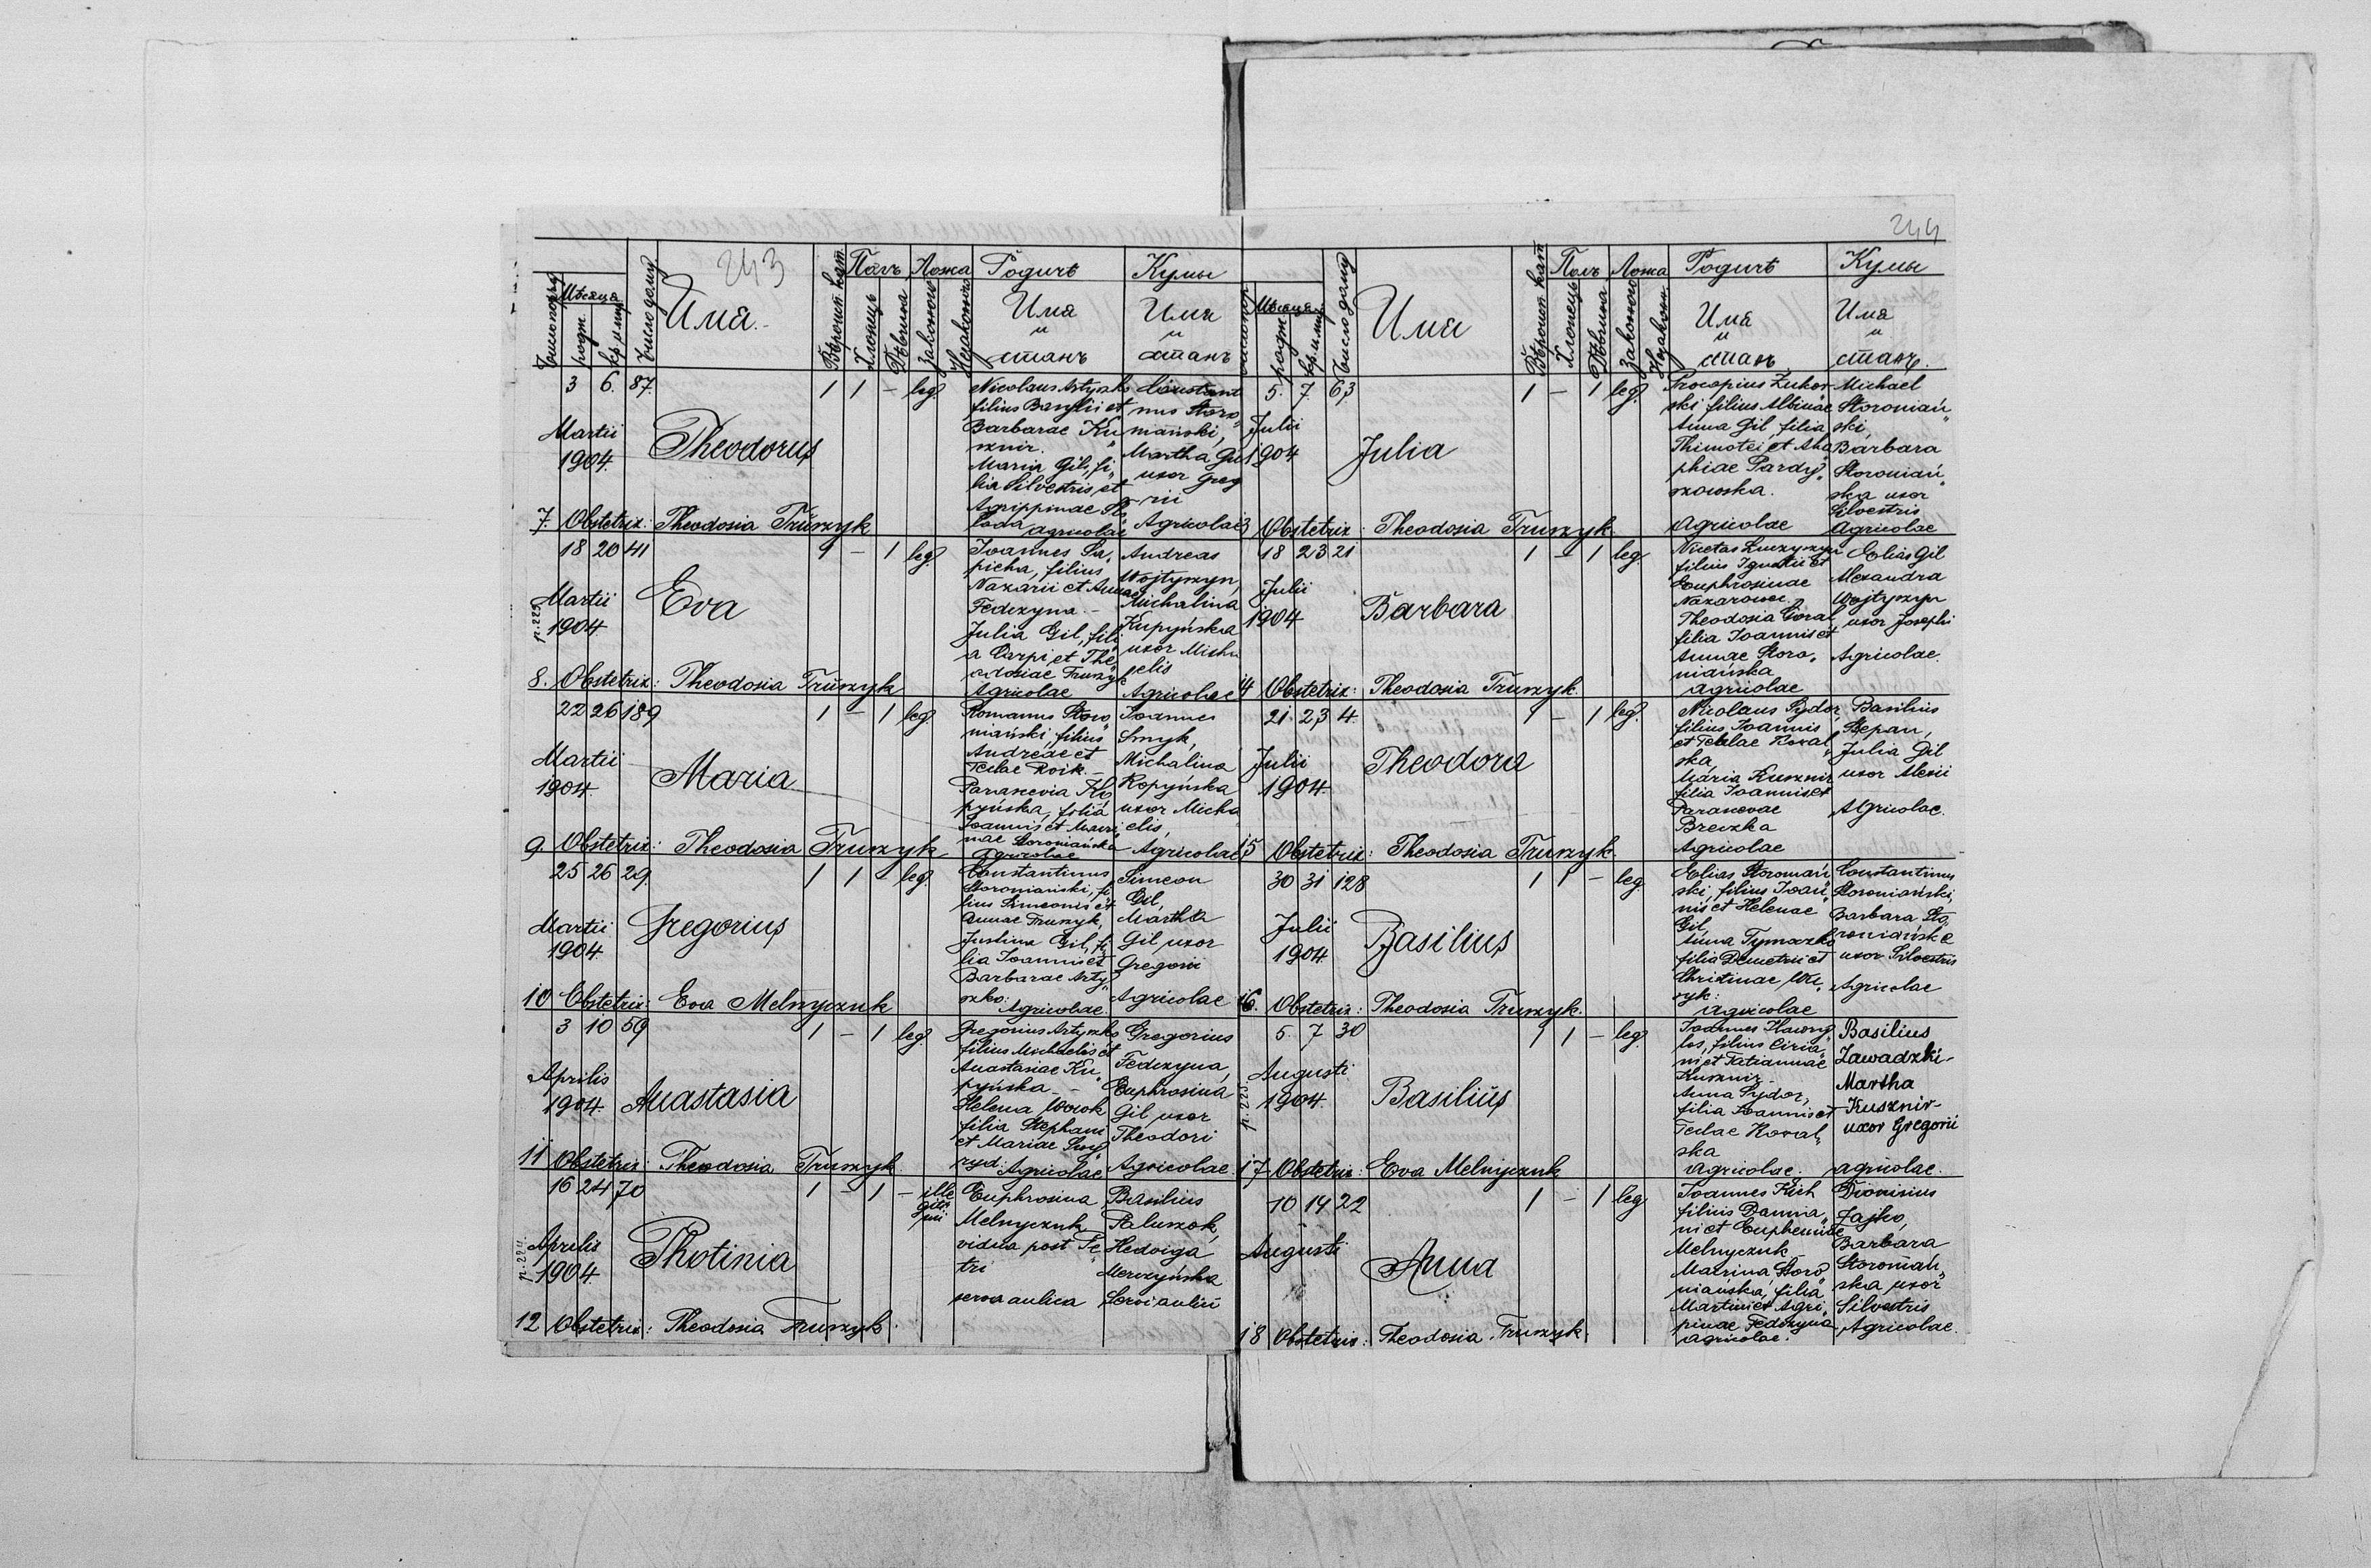 243
Число порядк.
Мѣсяця
родж.
кр. и мир.
Число дому
Имя.
Вѣроисп. кат.
Полъ
Хлопець
Дѣвчина
Ложа
Законого
Незаконого
Родичѣ
Имя
и
станъ
Кумы
Имя
и
станъ
3 6. 87. 1 1 - leg.
Martii
1904.
Theodorus
Nicolaus Artyszko
filius Basylii et
Barbarae Ku„
sznir.
Maria Gil, fi„
lia Silvestris et
Agrippinae
agricolae
Constanti
nus Storo„
niański,
Martha Gil
uxor Greg
orii
Agricolae
7 Obstetrix: Theodosia Truszyk
18 20 41 1 - 1 leg.
Martii
1904
Eva
Joannes Sa„
picha, filius
Nazarii et Annae
Fedczyna. -
Julia Gil, fili„
a Carpi et The„
odosiae Truszyk
Agricolae
Andreas
Wojtyszyn,
Michalina
Kupyńska
uxor Micha
elis
Agricolae
8. Obstetrix: Theodosia Truszyk
22 26 189 1 - 1 leg.
Martii
1904.
Maria
Romanus Storo„
niański, filius
Andreae et
Teclae Roik. -
Parascevia Ko
pyńska, filia
Joannis et Mari„
nae Storoniańska
Agricolae
Joannes
Smyk,
Michalina
Kopyńska
uxor Micha
elis,
Agricolae
9 Obstetrix: Theodosia Truszyk
25 26 29. 1 1 - leg.
Martii
1904.
Gregorius
Constantinus
Storoniański, fi„
lius Simeonis et
Annae Truszyk,
Justina Gil, fi„
lia Joannis et
Barbarae Arty„
szko:
Agricolae
Simeon
Gil,
Martha
Gil uxor
Gregorii
Agricolae
10 Obstetrix: Eva Melnyczuk
3 10 59 1 - 1 leg.
Aprilis
1904.
Anastasia
Gregorius Artyszko,
filius Michaelis et
Anastasiae Ku„
pyńska -
Helena Wowk
filia Stephani
et Mariae Swy„
ryd.
Agricolae
Gregorius
Fedczyna,
Euphrosina
Gil uxor
Theodori
Agricolae
11 Obstetrix: Theodosia Truszyk
16 24 70 1 - 1 - ille
giti
mi
Aprilis
1904.
Photinia
Euphrosina
Melnyczuk
vidua post Pe„
tri
serva aulica
Basilius
Paluszok,
Hedviga
Merczyńska
Servi aulici
12 Obstetrix: Theodosia Truszyk.
244
Мѣсяця
родж.
кр. и мир.
Число дому
Имя
Вѣроисп. кат.
Полъ
Хлопець
Дѣвчина
Ложа
Законого
Незакон.
Родичѣ
Имя
и
станъ
Кумы
Имя
и
станъ.
5. 7. 63 1 - 1 leg.
Julii
1904
Julia
Procopius Żukow
ski filius Albinae
Anna Gil, filia
Thimotei et Aga
phiae Pardy„
szowska.
Agricolae
Michael
Storoniań„
ski,
Barbara
Storoniań„
ska uxor
Silvestris
Agricolae
13 Obstetrix: Theodosia Truszyk
18 23 21 1 - 1 leg.
Julii
1904
Barbara
Nicetas Łuczyszyn
filius Ignatii et
Euphrosinae
Nazarowec.
Theodosia Góral
filia Joannis et
Annae Storo„
niańska
agricolae
Elias Gil
Alexandra
Wojtyszyn
uxor Josephi
Agricolae.
14 Obstetrix: Theodosia Truszyk
21 23 4. 1 - 1 leg.
Julii
1904.
Theodora
Nicolaus Sydor,
filius Joannis
et Teclae Kowal„
ska
Maria Kusznir
filia Joannis et
Parascevae
Breczka
Agricolae
Basilius
Stepan,
Julia Gil
uxor Alexii
Agricolae.
15 Obstetrix: Theodosia Truszyk.
30 31 128 1 1 - leg.
Julii
1904.
Basilius
Elias Storoniań„
ski, filius Joan„
nis et Helenae
Gil,
Anna Tymoczko
filia Demetrii et
Christinae
ryk:
agricolae
Constantinus
Storoniański,
Barbara Sto
roniańska
uxor Silvestris
Agricolae
16. Obstetrix: Theodosia Truszyk.
5. 7 30 1 1 - leg.
Augusti
1904.
Basilius
Joannes Hawry„
los, filius Ciria„
ni et Tatiannae
Kusznir -
Anna Sydor,
filia Joannis et
Teclae Kowal„
ska
agricolae.
Basilius
Zawadzki -
Martha
Kusznir -
uxor Gregorii
agricolae.
17 Obstetrix: Eva Melnyczuk
10 14 22 1 - 1 leg
Augusti
Anna
Joannes Kich
filius Damia„
ni et Euphemiae
Melnyczuk -
Marina Storo„
niańska, filia
Martini et Agri„
pinae Fedczyna
agricolae.
Dionisius
Zajko,
Barbara
Storoniań„
ska uxor
Silvestris
Agricolae.
18 Obstetrix: Theodosia Truszyk.